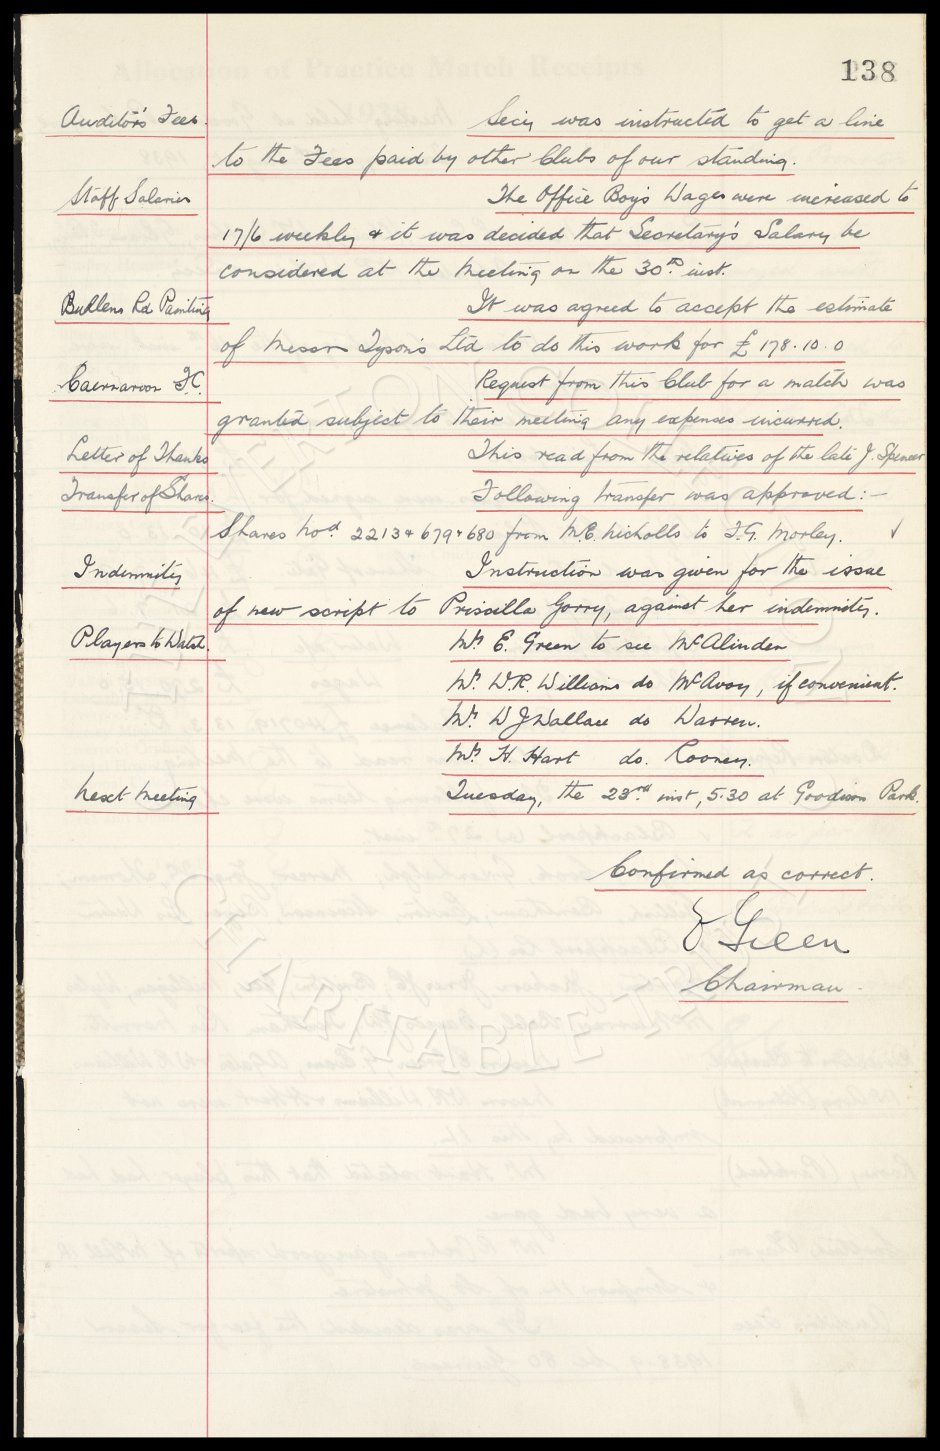 138
Auditor's Fees. Secy was instructed to get a line
to the Fees paid by other Clubs of our standing.
Staff Salaries The Office Boy's Wages were increased to
17/6 weekly & it was decided that Secretary's Salary be
considered at the meeting on the 30th inst.
Bullens Rd Painting It was agreed to accept the estimate
of Messrs Tyson's Ltd to do this work for £178.10.0
Caernarvon F.C. Request from this Club for a match was
granted subject to their meeting any expenses incurred.
Letter of Thanks This read from the relatives of the late J. Spencer
Transfer of Shares. Following transfer was approved:-
Shares Nod. 2213 & 679 & 680 from M.E. Nicholls to F.G. Morley. ✓
Indemnity Instruction was given for the issue
of new script to Priscilla Gorry, against her indemnity.
Players to Watch. Mr. E. Green to see McAlinden
Mr. W.R. Williams do McAvoy, if convenient.
Mr. W J Wallace do Warren.
Mr. H. Hart do. Rooney.
Next Meeting Tuesday, the 23rd inst, 5.30 at Goodison Park.
Confirmed as correct.
E Green
Chairman
CHARITABLE